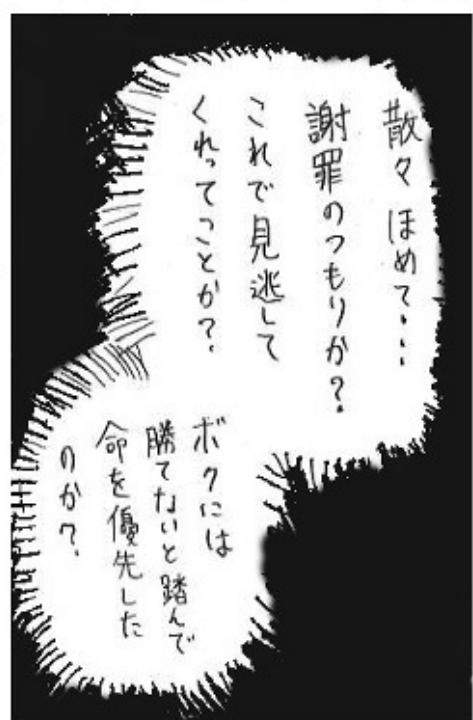 散々ほめて・・・
謝罪のつもりか?
これで見逃して
くれってことか?
ボクには
勝てないと踏んで
命を優先した
のか?